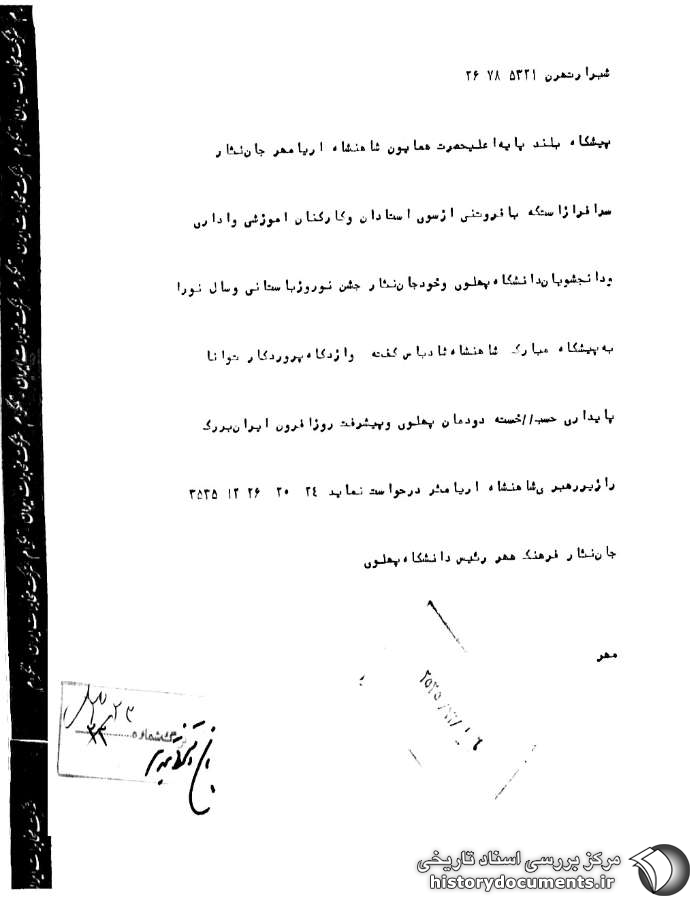 شیرا زتهرن ۵۳۲۱ ۷۸ ۲۶
پیشگاه بلند پایه اعلیحضرت همایون شاهنشاه اریامهر جان‌نثار
سرافرازاستکه بافروتنی ازسوی استادان وکارکنان اموزشی واداری
ودانجشویان‌دانشگاه‌پهلوی وخودجان‌نثار جشن نوروزباستانی وسال نورا
به‌پیشگاه مبارک شاهنشاه‌شادباس‌گفته وازدگاه‌پروردگار توانا
پایداری حسب//خسته دودمان پهلوی وپیشرفت روزافرون ایران‌بزرگ
رازیررهبر ی‌شاهنشاه اریامثر درحواست‌نماید ۲۴ ۲۰ ۲۶ ۱۲ ۳۵۳۵
جان‌نثار فرهنگ مهر رئیس دانشگاه‌پهلوی
مهر
شرکت مخابرات ایران - تلگرام
شماره
مرکز بررسی اسناد تاریخی
historydocuments.ir